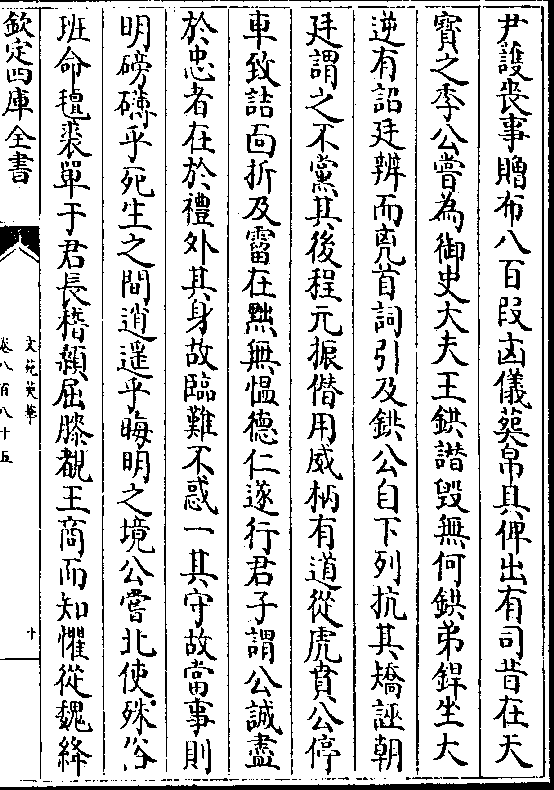 尹護喪事贈布八百段凶儀葬帛具俾出有司昔在天
寳之季公嘗為御史大夫王鉷譖毀無何鉷弟銲坐大
逆有詔廷辨而兇首詞引及鉷公自下列抗其矯誣朝
廷謂之不黨其後程元振僣用威柄有道從虎賁公停
車致詰面折及霤在黜無愠德仁遂行君子謂公誠盡
於忠者在於禮外其身故臨難不惑一其守故當事則
明磅礴乎死生之間逍遥乎晦明之境公嘗北使殊俗
班命氊裘單于君長稽顙屈膝覩王商而知懼從魏絳
欽定四庫全書
文苑英華
卷八百八十五
十